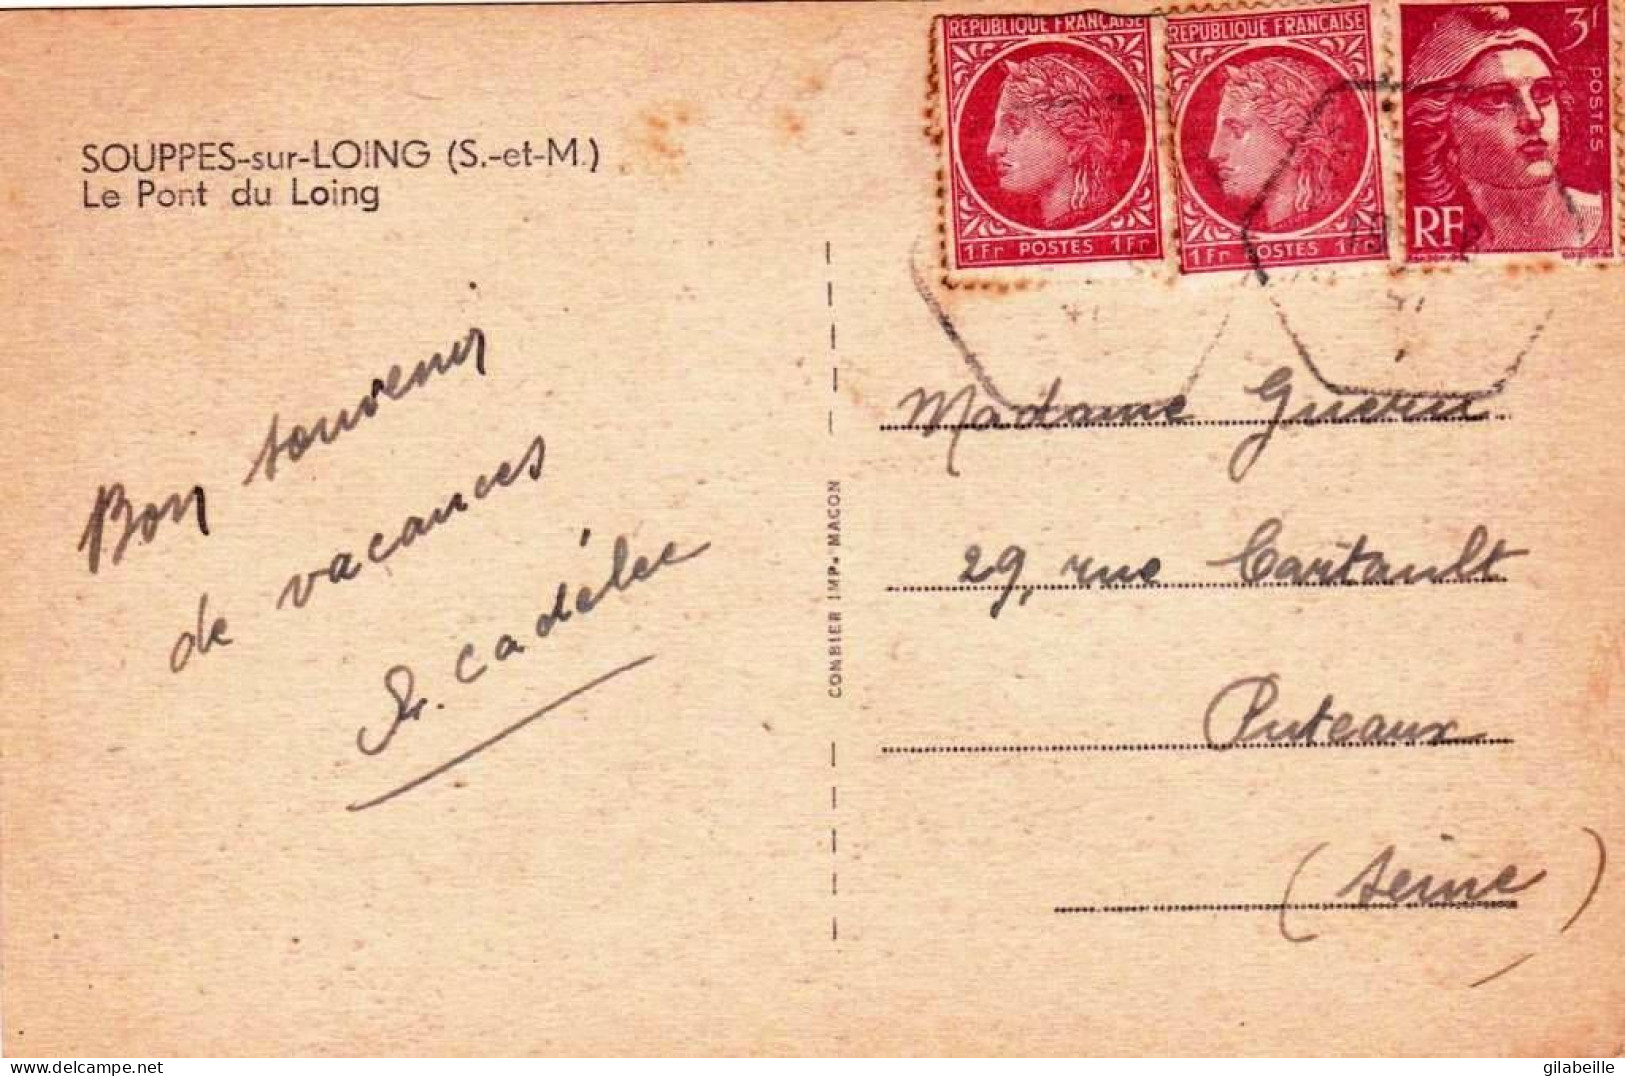 SOUPPES-sur-LOING (S.-et-M.)
Le Pont du Loing
RÉPUBLIQUE FRANÇAISE
1Fr POSTES 1Fr
RÉPUBLIQUE FRANÇAISE
1Fr POSTES 1Fr
3F
POSTES
RF
Bon souvenir
de vacances
COMBIER IMP. MACON
Madame Guerin
29, rue Cartault
Puteaux
(Seine)
gilabeille